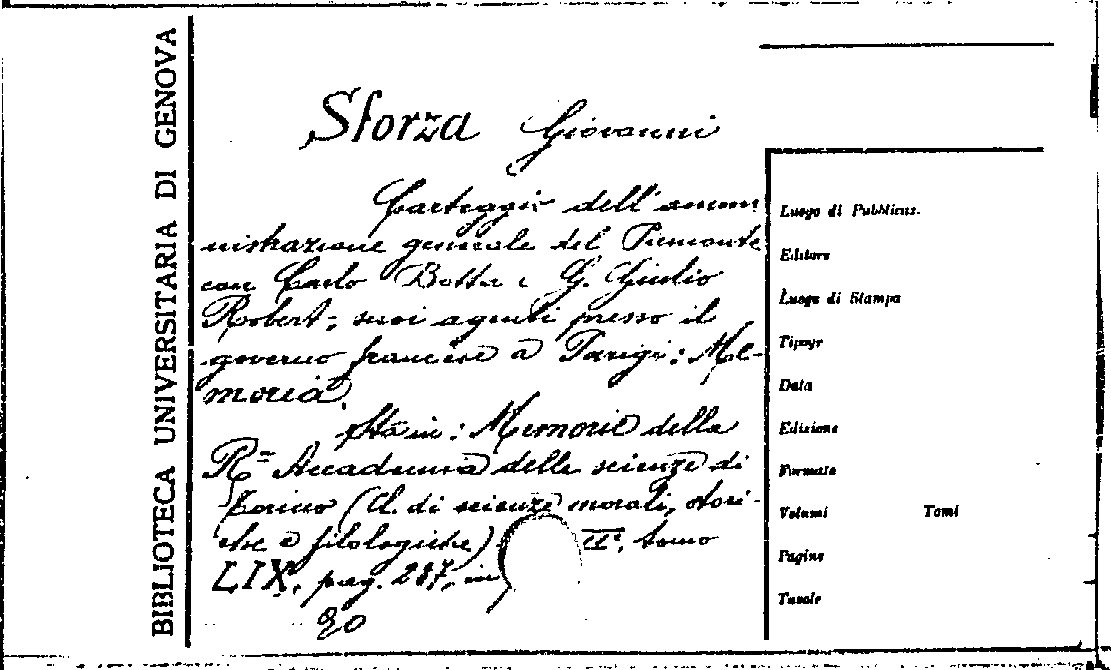 BIBLIOTECA UNIVERSITARIA DI GENOVA
Sforza Giovanni
Carteggio dell'ammi
nistrazione generale del Piemonte
con Carlo Botta e G. Giulio
Robert, suoi agenti presso il
governo francese a Parigi: Me-
moria.
Sta in: Memorie della
R= Accademia delle scienze di
Torino (Cl. di scienze morali, stori-
che e filologiche) II, tomo
LIX, pag. 287, in
Luogo di Pubblicaz.
Editore
Luogo di Stampa
Tipogr
Data
Edizione
Formato
Volumi Tomi
Pagine
Tavole